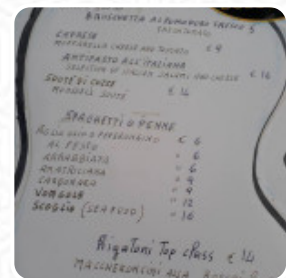 BRUSCHETTA AL POMODORO FRESCO 5
CAPRESE
MOZZARELLA CHEESE AND TOMATO € 9
ANTIPASTO ALL'ITALIANA
SELECTION OF ITALIAN SALAMI AND CHEESE € 16
SOUTÈ DI COZZE
MUSSELS SOUTÈ € 14
SPAGHETTI O PENNE
AGLIO OLIO E PEPERONCINO € 6
AL PESTO " 6
ARRABBIATA " 6
AMATRICIANA " 9
CARBONARA " 9
VONGOLE " 12
SCOGLIO (SEAFOOD) " 16
Rigatoni Top Class € 14
MACCHERONCINI ALLA